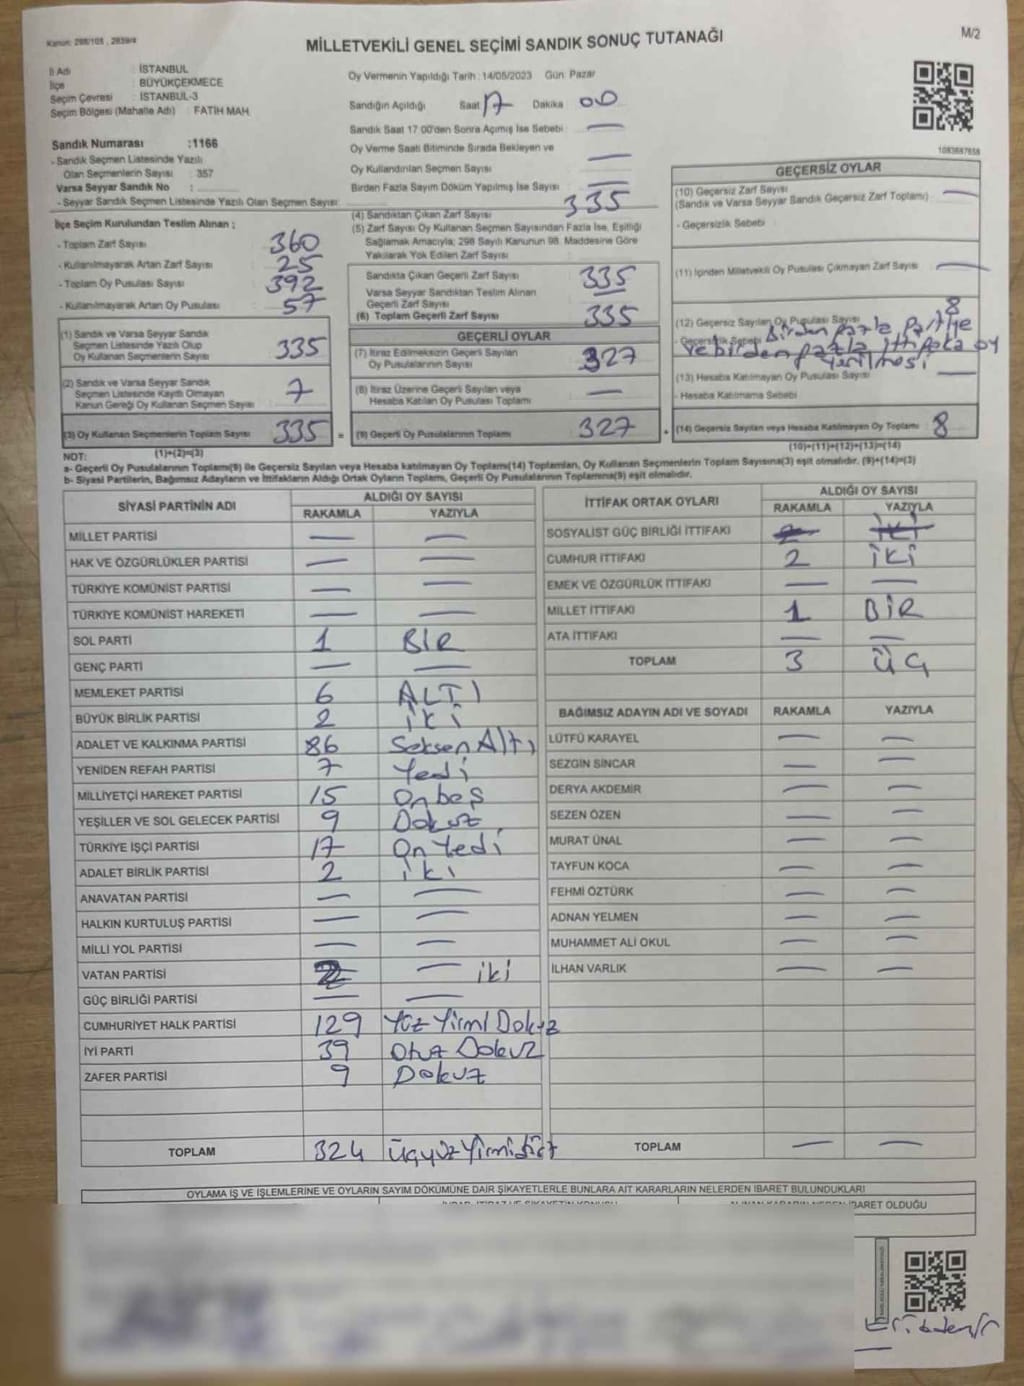 Kanun: 298/105 , 2839/4
MİLLETVEKİLİ GENEL SEÇİMİ SANDIK SONUÇ TUTANAĞI
M/2
İl Adı : İSTANBUL
İlçe : BÜYÜKÇEKMECE
Seçim Çevresi : İSTANBUL-3
Seçim Bölgesi (Mahalle Adı) : FATİH MAH.
Oy Vermenin Yapıldığı Tarih : 14/05/2023 Gün: Pazar
Sandığın Açıldığı Saat 17 Dakika 00
Sandık Saat 17:00'den Sonra Açılmış İse Sebebi : —
Oy Verme Saati Bitiminde Sırada Bekleyen ve
Oy Kullandırılan Seçmen Sayısı —
Birden Fazla Sayım Döküm Yapılmış İse Sayısı —
1083687658
Sandık Numarası :1166
- Sandık Seçmen Listesinde Yazılı
Olan Seçmenlerin Sayısı : 357
Varsa Seyyar Sandık No :
- Seyyar Sandık Seçmen Listesinde Yazılı Olan Seçmen Sayısı:
İlçe Seçim Kurulundan Teslim Alınan ;
- Toplam Zarf Sayısı 360
- Kullanılmayarak Artan Zarf Sayısı 25
- Toplam Oy Pusulası Sayısı 392
- Kullanılmayarak Artan Oy Pusulası 57
(1) Sandık ve Varsa Seyyar Sandık
Seçmen Listesinde Yazılı Olup
Oy Kullanan Seçmenlerin Sayısı 335
(2) Sandık ve Varsa Seyyar Sandık
Seçmen Listesinde Kayıtlı Olmayan
Kanun Gereği Oy Kullanan Seçmen Sayısı 7
(3) Oy Kullanan Seçmenlerin Toplam Sayısı 335 =
(1)+(2)=(3)
(4) Sandıktan Çıkan Zarf Sayısı 335
(5) Zarf Sayısı Oy Kullanan Seçmen Sayısından Fazla İse, Eşitliği
Sağlamak Amacıyla; 298 Sayılı Kanunun 98. Maddesine Göre
Yakılarak Yok Edilen Zarf Sayısı
Sandıkta Çıkan Geçerli Zarf Sayısı 335
Varsa Seyyar Sandıktan Teslim Alınan
Geçerli Zarf Sayısı —
(6) Toplam Geçerli Zarf Sayısı 335
GEÇERLİ OYLAR
(7) İtiraz Edilmeksizin Geçerli Sayılan
Oy Pusulalarının Sayısı 327
(8) İtiraz Üzerine Geçerli Sayılan veya
Hesaba Katılan Oy Pusulası Toplamı —
(9) Geçerli Oy Pusulalarının Toplamı 327 +
GEÇERSİZ OYLAR
(10) Geçersiz Zarf Sayısı
(Sandık ve Varsa Seyyar Sandık Geçersiz Zarf Toplamı) —
- Geçersizlik Sebebi
(11) İçinden Milletvekili Oy Pusulası Çıkmayan Zarf Sayısı —
(12) Geçersiz Sayılan Oy Pusulası Sayısı 8
- Geçersizlik Sebebi Birden fazla partiye
ve birden fazla ittifaka oy
verilmesi
(13) Hesaba Katılmayan Oy Pusulası Sayısı —
- Hesaba Katılmama Sebebi
(14) Geçersiz Sayılan veya Hesaba Katılmayan Oy Toplamı 8
(10)+(11)+(12)+(13)=(14)
NOT:
a- Geçerli Oy Pusulalarının Toplamı(9) ile Geçersiz Sayılan veya Hesaba katılmayan Oy Toplamı(14) Toplamları, Oy Kullanan Seçmenlerin Toplam Sayısına(3) eşit olmalıdır. (9)+(14)=(3)
b- Siyasi Partilerin, Bağımsız Adayların ve İttifakların Aldığı Ortak Oyların Toplamı, Geçerli Oy Pusulalarının Toplamına(9) eşit olmalıdır.
SİYASİ PARTİNİN ADI ALDIĞI OY SAYISI
RAKAMLA YAZIYLA
MİLLET PARTİSİ — —
HAK VE ÖZGÜRLÜKLER PARTİSİ — —
TÜRKİYE KOMÜNİST PARTİSİ — —
TÜRKİYE KOMÜNİST HAREKETİ — —
SOL PARTİ 1 BİR
GENÇ PARTİ — —
MEMLEKET PARTİSİ 6 ALTI
BÜYÜK BİRLİK PARTİSİ 2 iki
ADALET VE KALKINMA PARTİSİ 86 Seksen Altı
YENİDEN REFAH PARTİSİ 7 Yedi
MİLLİYETÇİ HAREKET PARTİSİ 15 Onbeş
YEŞİLLER VE SOL GELECEK PARTİSİ 9 Dokuz
TÜRKİYE İŞÇİ PARTİSİ 17 On Yedi
ADALET BİRLİK PARTİSİ 2 iki
ANAVATAN PARTİSİ — —
HALKIN KURTULUŞ PARTİSİ — —
MİLLİ YOL PARTİSİ — —
VATAN PARTİSİ 2 — iki
GÜÇ BİRLİĞİ PARTİSİ — —
CUMHURİYET HALK PARTİSİ 129 Yüz Yirmi Dokuz
İYİ PARTİ 39 Otuz Dokuz
ZAFER PARTİSİ 9 Dokuz
TOPLAM 324 Üçyüz Yirmidört
İTTİFAK ORTAK OYLARI ALDIĞI OY SAYISI
RAKAMLA YAZIYLA
SOSYALİST GÜÇ BİRLİĞİ İTTİFAKI 2 İKİ
CUMHUR İTTİFAKI 2 İKİ
EMEK VE ÖZGÜRLÜK İTTİFAKI — —
MİLLET İTTİFAKI 1 BİR
ATA İTTİFAKI — —
TOPLAM 3 ÜÇ
BAĞIMSIZ ADAYIN ADI VE SOYADI RAKAMLA YAZIYLA
LÜTFÜ KARAYEL — —
SEZGİN SİNCAR — —
DERYA AKDEMİR — —
SEZEN ÖZEN — —
MURAT ÜNAL — —
TAYFUN KOCA — —
FEHMİ ÖZTÜRK — —
ADNAN YELMEN — —
MUHAMMET ALİ OKUL — —
İLHAN VARLIK — —
TOPLAM — —
OYLAMA İŞ VE İŞLEMLERİNE VE OYLARIN SAYIM DÖKÜMÜNE DAİR ŞİKAYETLERLE BUNLARA AİT KARARLARIN NELERDEN İBARET BULUNDUKLARI
İBARET OLDUĞU